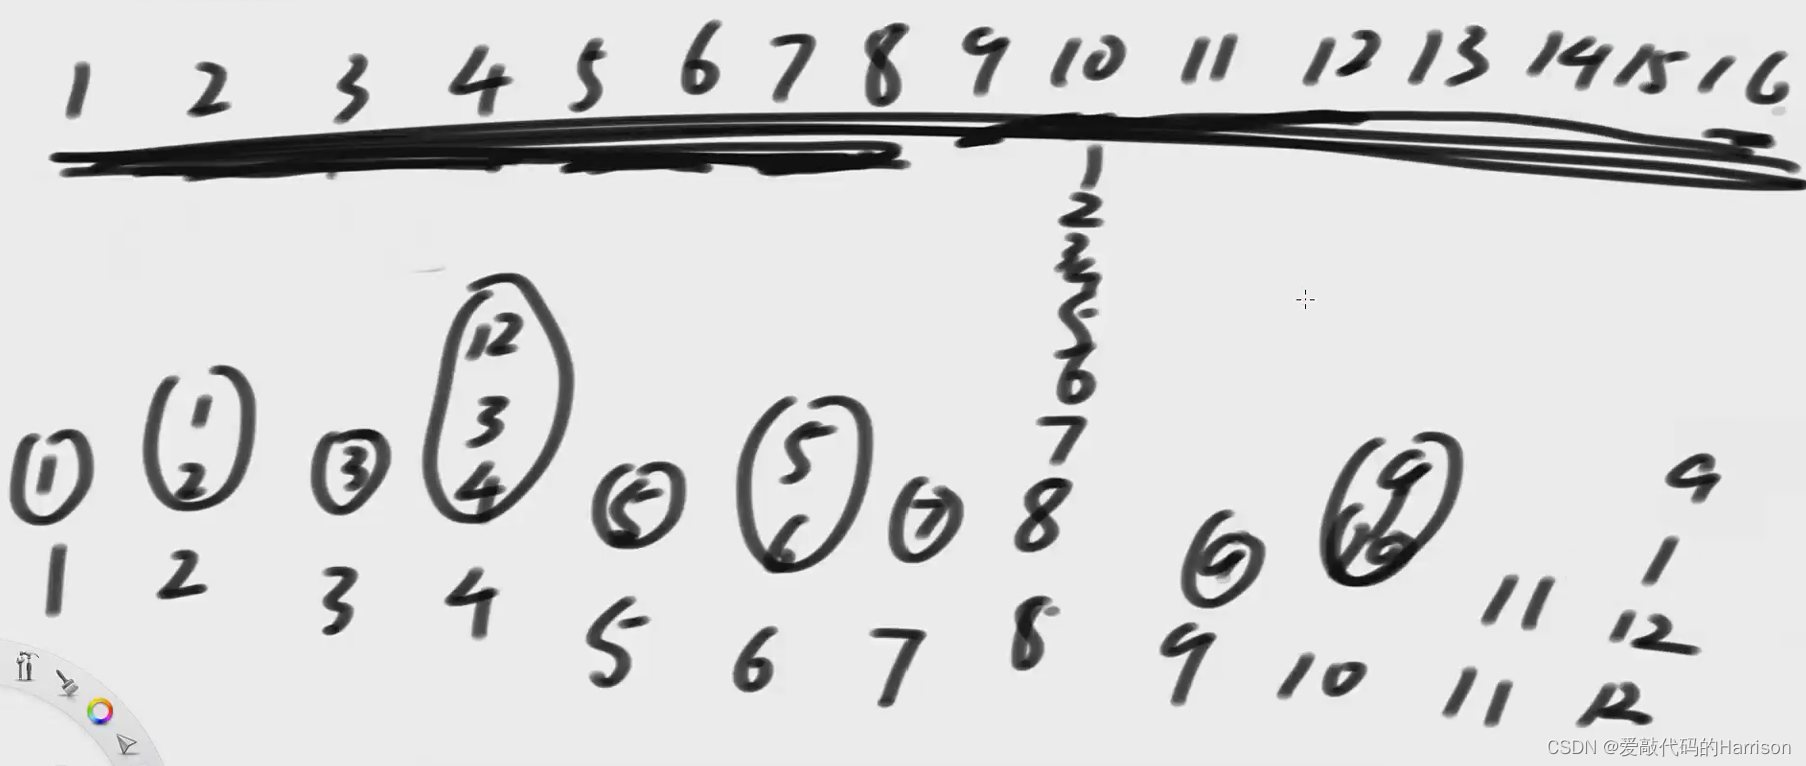 1 2 3 4 5 6 7 8 9 10 11 12 13 14 15 16
1
2
3
4
5
6
7
8
12
3
4
1
2
1
3
5
5
6
7
9
9
10
9
1
11
12
1 2 3 4 5 6 7 8 9 10 11 12
CSDN @爱敲代码的Harrison